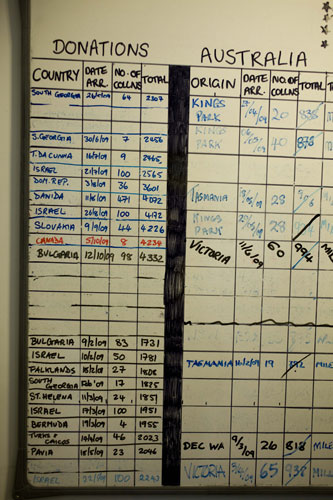 DONATIONS
COUNTRY DATE ARR. NO. OF COLLNS TOTAL
SOUTH GEORGIA 64 2307
S. GEORGIA 30/6/09 7 2456
T. DA CUNHA 9 2465
ISRAEL 100 2565
DOM. REP. 36 3601
DANIDA 471 4072
ISRAEL 100 4192
SLOVAKIA 9/9/09 44 4226
CANADA 5/10/09 8 4234
BULGARIA 12/10/09 98 4332
BULGARIA 9/2/09 83 1731
ISRAEL 10/2/09 50 1781
FALKLANDS 18/2/09 27 1808
SOUTH GEORGIA 17 1825
ST. HELENA 11/3/09 24 1851
ISRAEL 17/3/09 100 1951
BERMUDA 19/3/09 4 1955
TURKS & CAICOS 46 2023
PAVIA 23 2046
ISRAEL 100
AUSTRALIA
ORIGIN DATE ARR. NO. OF COLLNS TOTAL
KINGS PARK 20 838
KINGS PARK 40 878
TASMANIA 28
KINGS PARK 28
VICTORIA 11/6/09 60 994
TASMANIA 19
DEC WA 9/3/09 26 818 MILE
VICTORIA 65 938 MILE